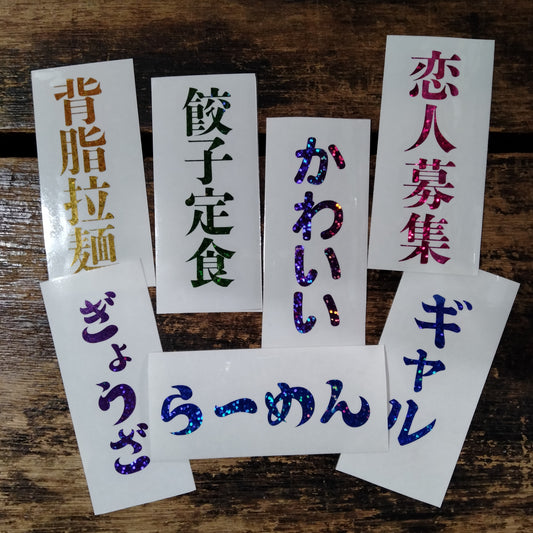 背脂拉麺
餃子定食
かわいい
恋人募集
ぎょうざ
らーめん
ギャル